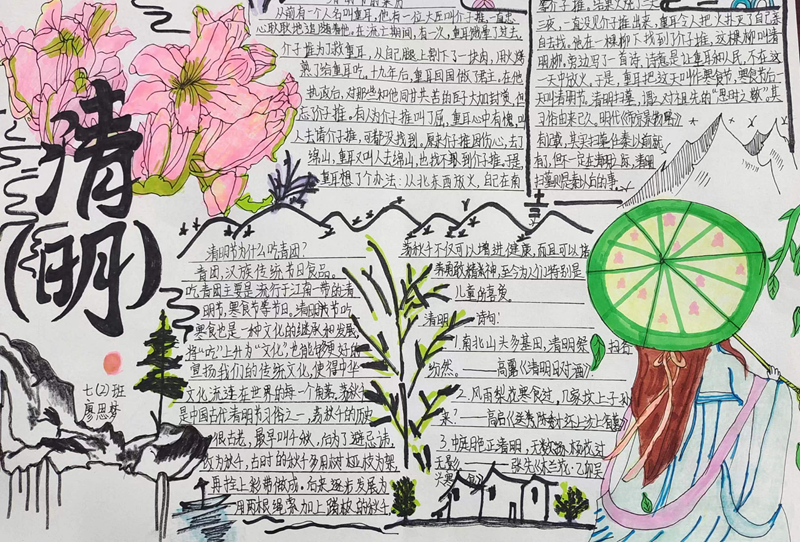 清
(明)
七(2)班
廖思梦
清明节的来历
从前有一个人名叫重耳,他有一位大臣叫介子推,一直忠
心耿耿地追随着他,在流亡期间,有一次,重耳饿晕了过去,
介子推为了救重耳,从自己腿上割下了一块肉,用火烤
熟了给重耳吃,十九年后,重耳回国做了君主,在他
执政后,对那些和他同甘共苦的臣子大加封赏,但
忘介子推,有人为介子推叫了屈,重耳心中有愧,叫
人去请介子推,可都没找到。原来介子推因伤心,去了
绵山,重耳又叫人去绵山,也找不到介子推,于是
重耳想了个办法:从北东西放火,自己在南
三夜,一直没见介子推出来,重耳令人把火扑灭了自己亲
自去找。他在一棵柳下找到了介子推,这棵柳叫清
明柳,旁边写了一首诗,诗意是让重耳和人民,不在这
一天中放火,于是,重耳把这天叫作寒食节,寒食节后一
天叫清明节。清明扫墓,谓之对祖先的“思时之敬”,其
习俗由来已久,明代《帝京景物略》
记载,其实扫墓在秦以前就
有,但不一定在清明之际,清明
扫墓则是秦以后的事。
清明节为什么吃青团?
青团,汉族传统节日食品。
吃青团主要是流行于江南一带的清
明节,寒食节等节日。清明节吃
寒食也是一种文化的继承和发展,
将“吃”上升为“文化”,也能够更好的
宣扬我们的传统文化,使得中华
文化流连在世界的每一个角落。荡秋千
是中国古代清明节习俗之一,荡秋千的历史
很古老,最早叫千秋,后为了避忌讳,
改为秋千,古时的秋千多用树桠枝为架,
再拴上彩带做成。后来逐步发展为
用两根绳索加上踏板的秋千,
荡秋千不仅可以增进健康,而且可以培
养勇敢精神,至今为人们特别是
儿童的喜爱。
清明 诗句:
1.南北山头多墓田,清明祭扫各
纷然。——高翥《清明日对酒》
2.风雨梨花寒食过,几家坟上子孙
来?——高启
3.中庭月色正清明,无数杨花过
无影。——张先《木兰花·乙卯吴
兴寒食》